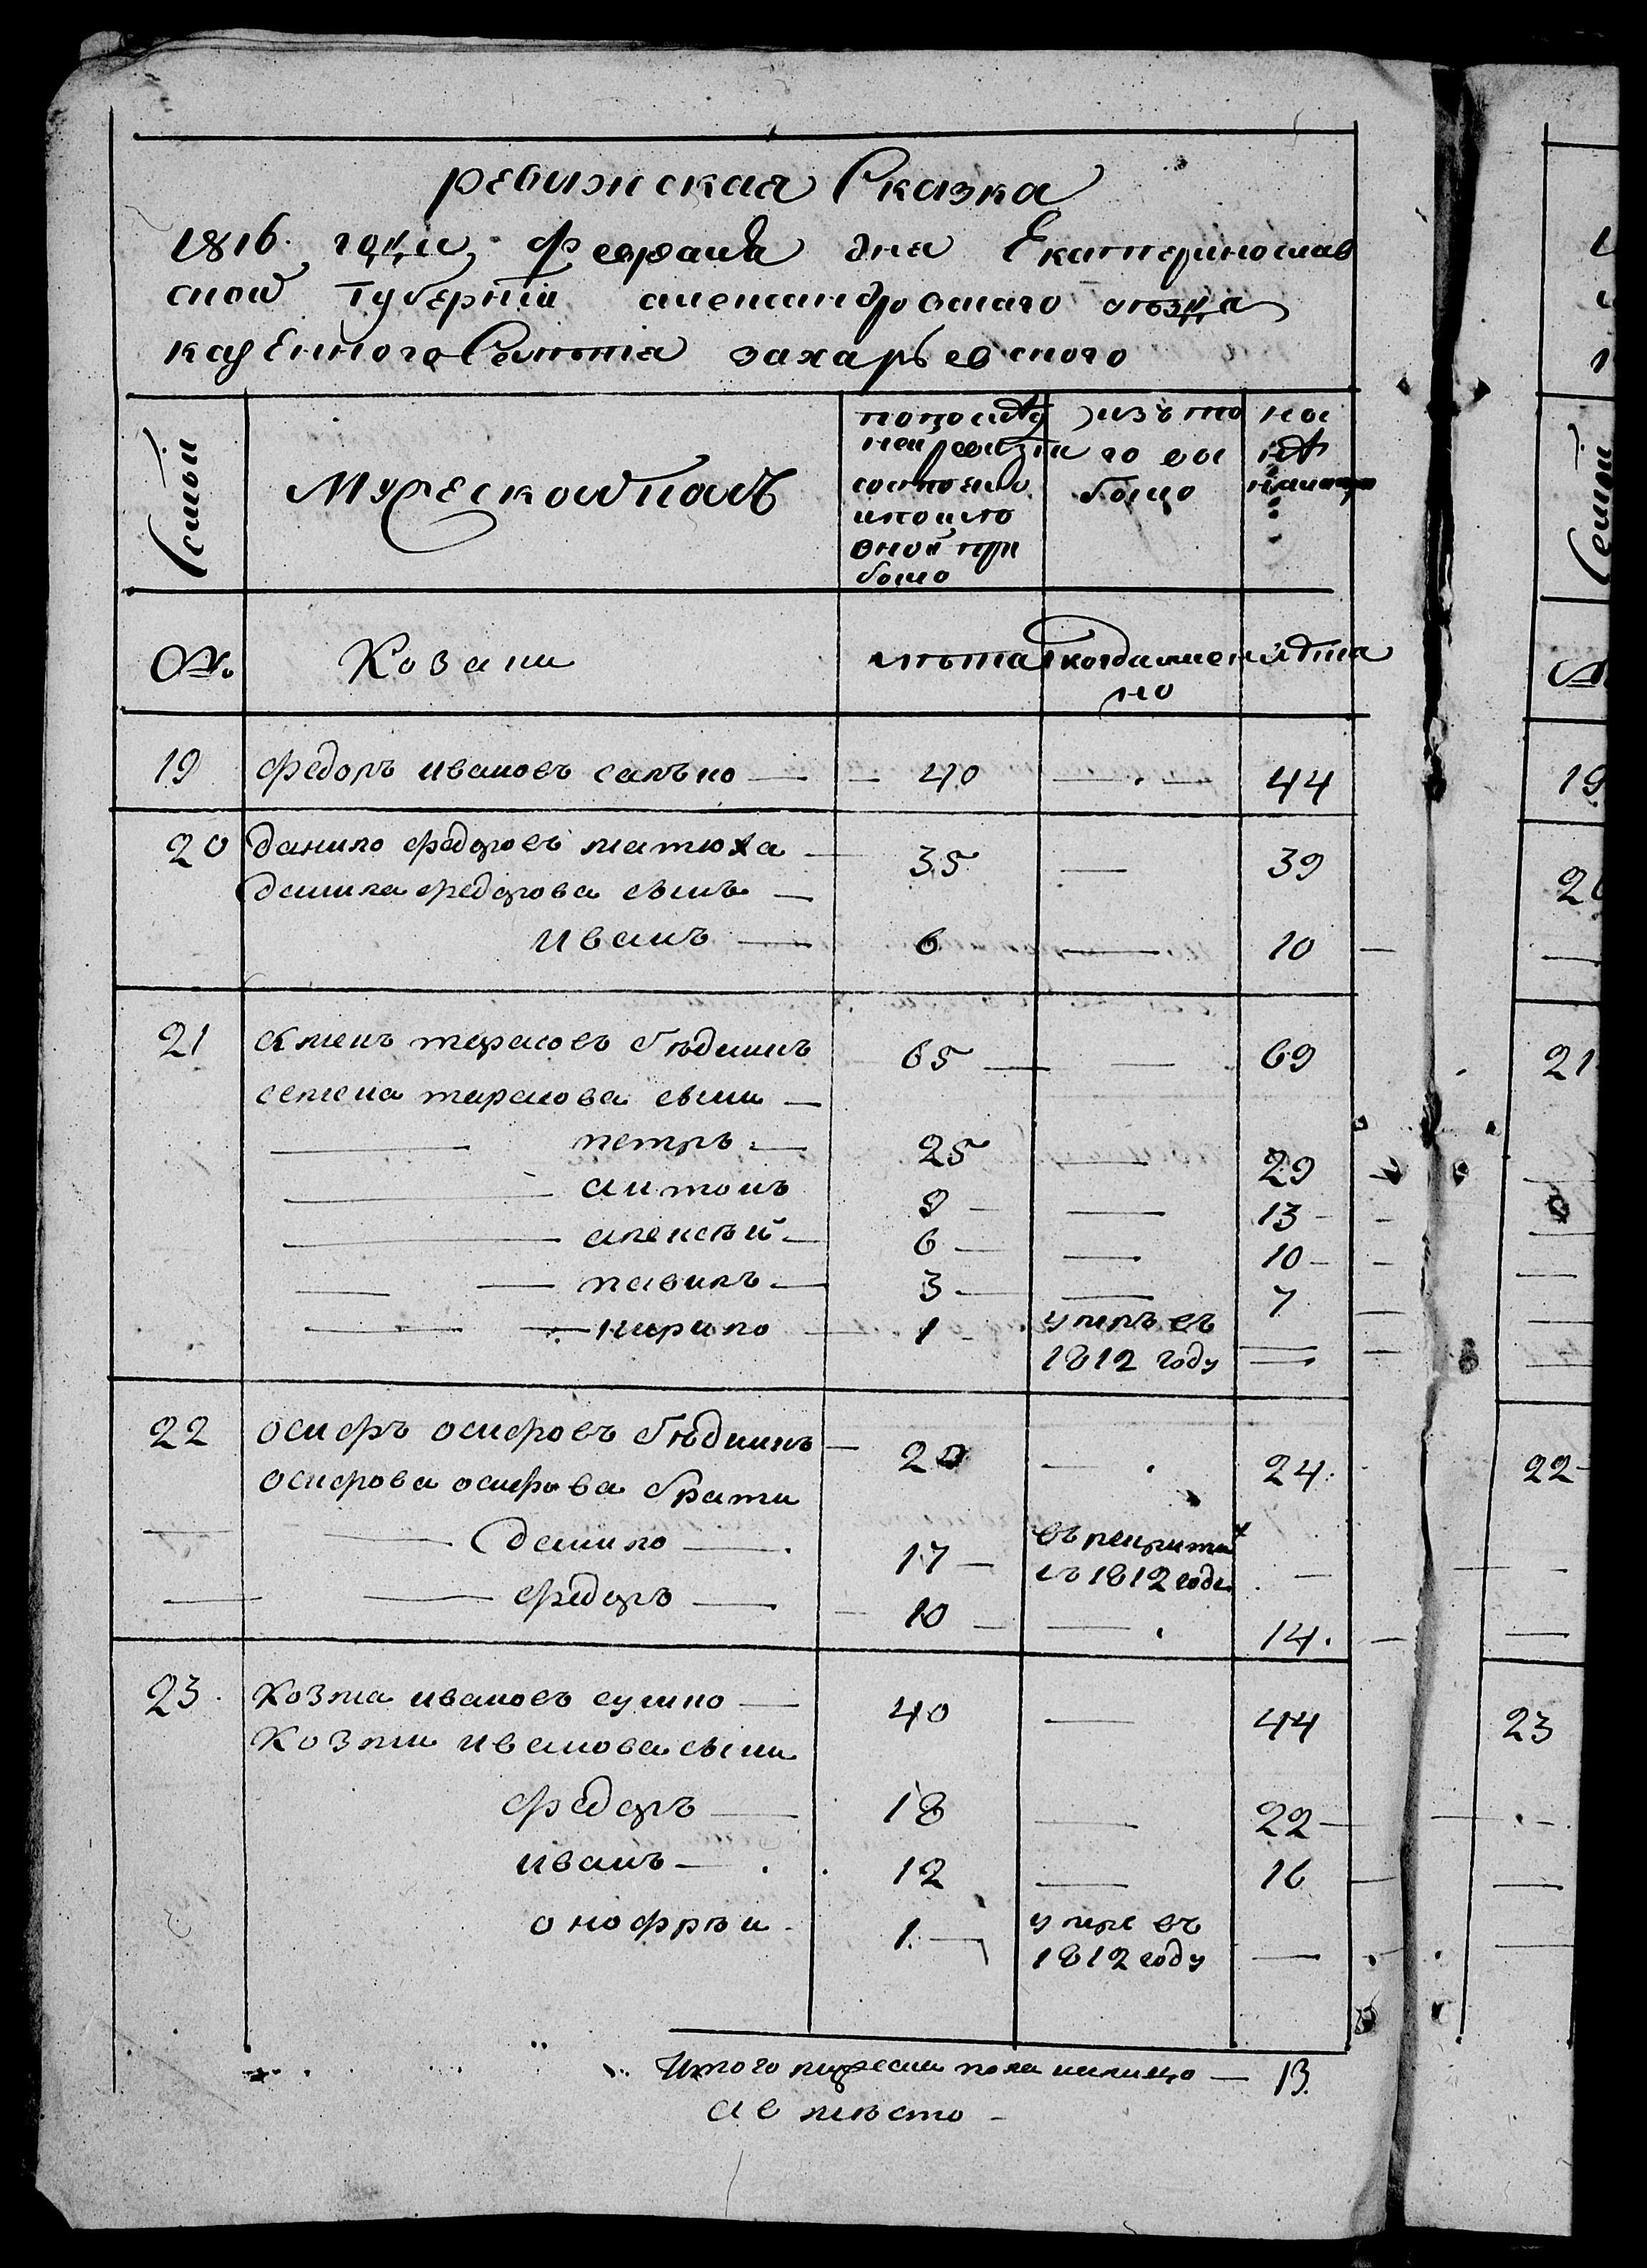 ревижская Сказка
1816 года Февраля дня Екатеринослав
ской Губерніи александровскаго оъзда
казенного Селенія захарьевского
Семьи
Мужеской полъ
попослѣд
ней ревизіи
состояло
ипосле
оной при
было
изъ то
го вы
было
ны
нѣ
налицо
№
Козаки
лѣта
когдаимен
но
лѣта
19 федоръ ивановъ салъко 40 — 44
20 данило федоровъ матюха 35 — 39
данила федорова сынъ
иванъ 6 — 10
21 семенъ тарасовъ бѣдникъ 65 — 69
семена тарасова сыни
петръ 25 — 29
антонъ 9 — 13
алексѣй 6 — 10
павилъ 3 — 7
кирило 1 умръ въ
1812 году
22 осифъ осифовъ бѣдникъ 20 — 24
осифова осифова брати
данило 17 въ рекрити
въ 1812 годе
федоръ 10 — 14
23 козма ивановъ сушко 40 — 44
Козми иванова сыни
федоръ 18 — 22
иванъ 12 — 16
онофрѣи 1 умре въ
1812 году
Итого мужеска пола налицо — 13
19
20
21
22
23